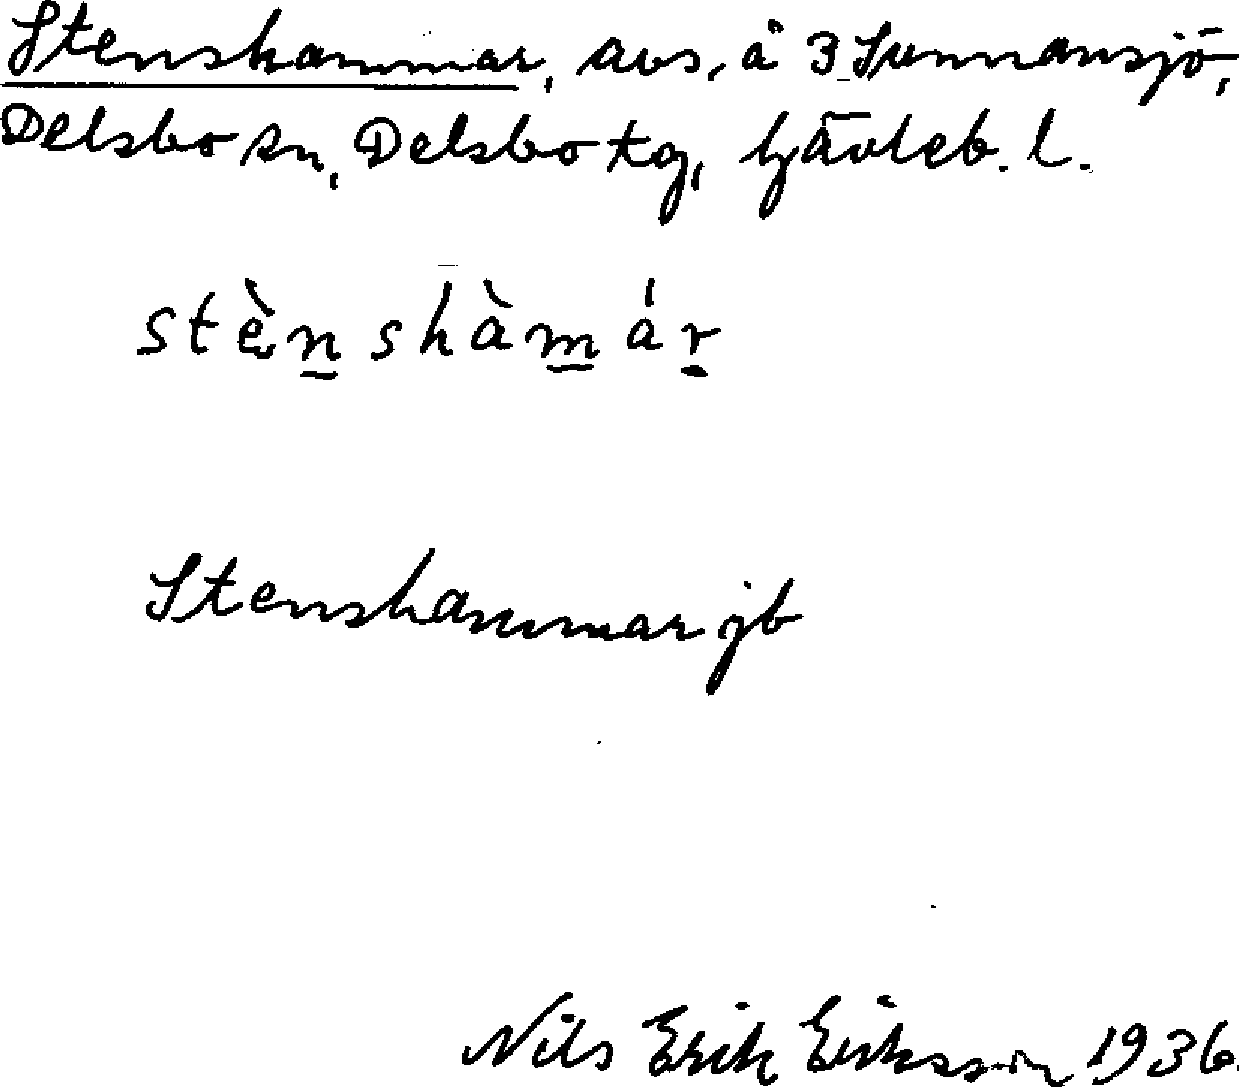 Stenshammar, avs, å 3 Sunnansjö,
Delsbo sn, Delsbo tg, Gävleb. l.
stènshàmár
Stenshammar jb
Nils Erik Eriksson 1936.